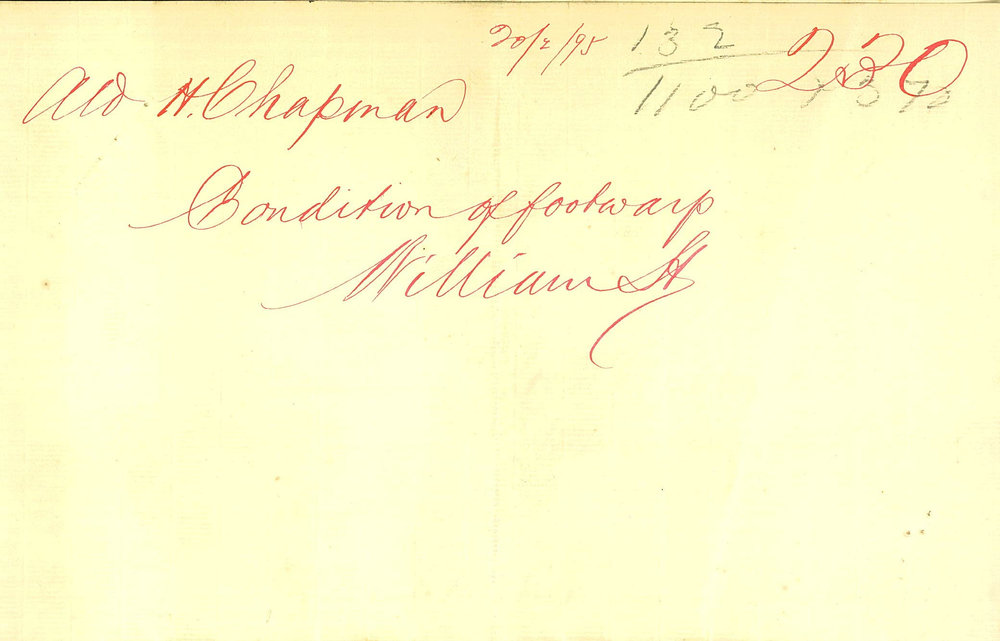 20/2/95 132 230
1100
Ald. H. Chapman
Condition of footway
William St